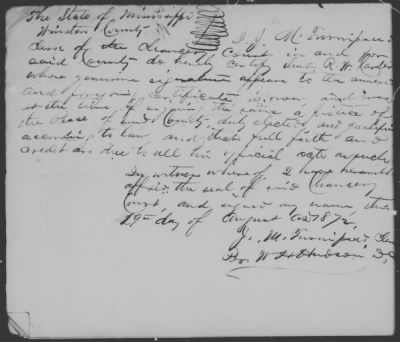 The State of Mississippi
Winston County
I J. M. Turnipseed
Clerk of the Chancery Court in and for
said County do hereby certify that R. W.
whose genuine signature appears to the annexed
and foregoing certificate is now and was
at the time of signing the same a Justice of
the Peace of said County duly elected and qualified
according to law and that full faith and
credit are due to all his official acts as such
In witness whereof I have hereunto
affixed the seal of said Chancery
Court, and signed my name this
19th day of August AD 187
J. M. Turnipseed Clerk
Per W. H. Hudson D.C.